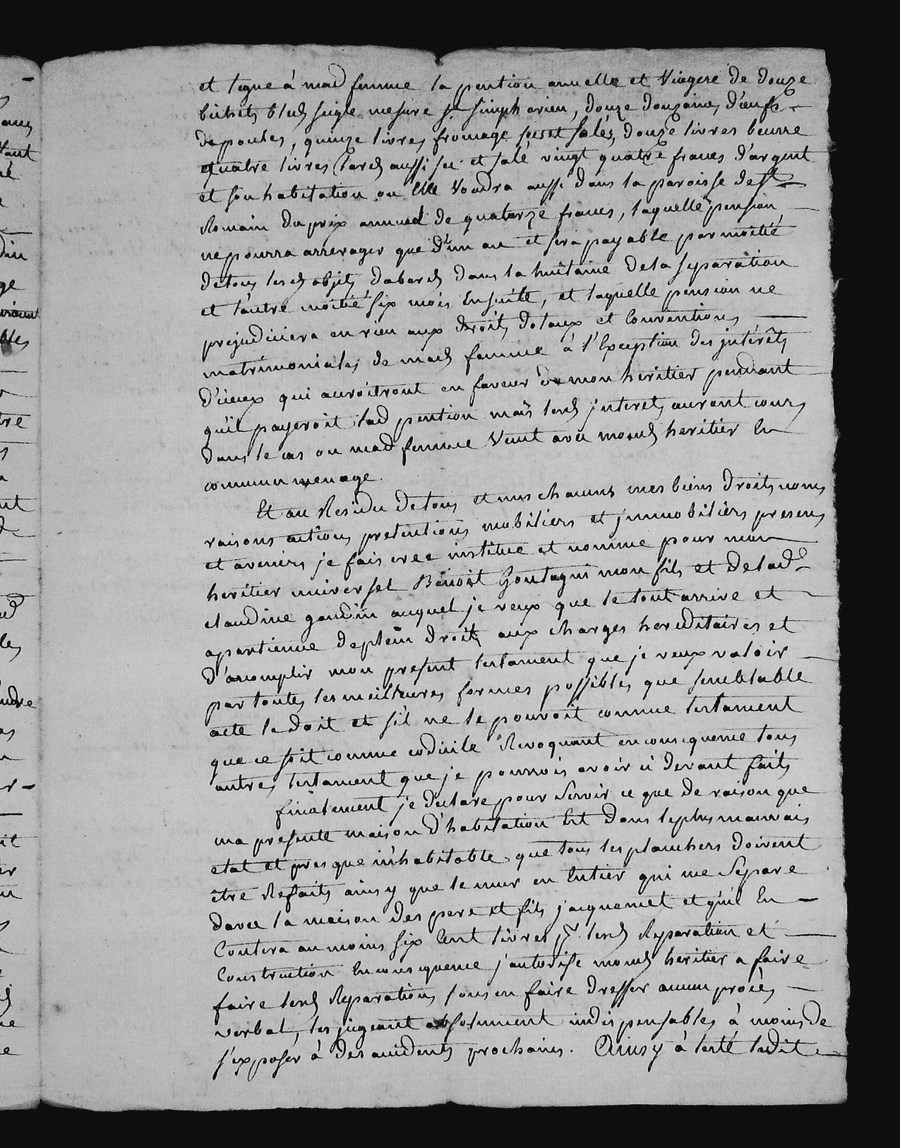 et legue à mad femme la pention annuelle et Viagere de douze
bichets bled seigle mesure St Simphorien, douze douzaines d'œufs
de poules, quinze livres fromage sec et salés, douze livres beurre
quatre livres lard aussi sec et salé vingt quatre francs d'argent
et son habitation ou Elle Voudra aussi dans la paroisse de St
Romain du prix annuel de quatorze francs, laquelle pension
ne pourra arrerager que d'un an et sera payable par moitié
de tous lesd objets d'abord dans la huitaine de la separation
et l'autre moitié six mois Ensuite, et laquelle pension ne
prejudiciera en rien aux droits dotaux et Conventions
matrimoniales de mad femme à l'Exception des jntérêts
d'iceux qui accroitront en faveur de mon heritier pendant
qu'il payeroit lad pention mais lesd jnterets auront cours
dans le cas ou mad femme Vecut avec mond heritier En
commun menage.
Et au Residu de tous et uns chacuns mes biens droits noms
raisons actions pretentions mobiliers et jmmobiliers presens
et avenirs je fais cree institue et nomme pour mon
heritier universel Benoît Gontagni mon fils et de lade
claudine gaudin auquel je veux que le tout arrive et
apartienne de plein droit aux charges hereditaires et
d'accomplir mon present testament que je veux valoir
par toutes les meilleures formes possibles que semblable
acte le doit et s'il ne le pouvoit comme testament
que ce soit comme codicile Revoquant en consequence tous
autres testament que je pourrois avoir ci devant faits
finalement je déclare pour servir ce que de raison que
ma présente maison d'habitation Est dans le plus mauvais
etat et presque inhabitable que tous les planchers doivent
être Refaits ainsy que le mur en Entier qui me Separe
davec la maison des pere et fils jacquemet et qu'il En
Coutera au moins six Cent livres pr lesd Reparation et
Construction En consequence j'autorise mond heritier a faire
faire lesd Reparations sans en faire dresser aucun procès
verbal, les jugeant absolument indispensables à moins de
s'exposer à des accidents prochains. Ainsy à testé ledit